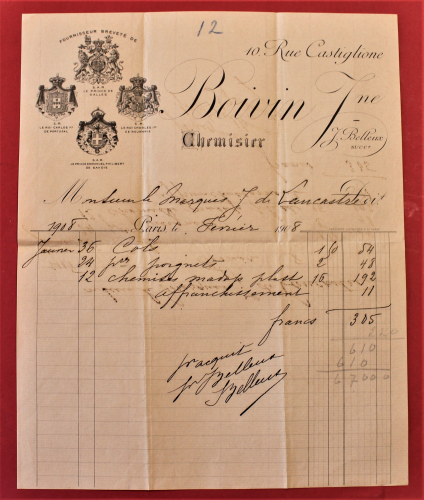 12
FOURNISSEUR BREVETÉ DE
S.A.R.
LE PRINCE DE
GALLES
S.M.
LE ROI CARLOS Iᵉʳ
DE PORTUGAL
S.M.
LE ROI CHARLES Iᵉʳ
DE ROUMANIE
S.A.R.
DE SAVOIE
10 Rue Castiglione
Boivin Jne
J. Belleux
SUCCʳ
Chemisier
Monsieur le Marquis J. de Lancastre Doit
1908 Paris le Février 1908
Janvier 36 Cols 54
24 pres poignets 2 48
12 chemises madap plast 16 192
affranchissement 11
francs 305
610
610
pr acquit
pr J Belleux
J Belleux